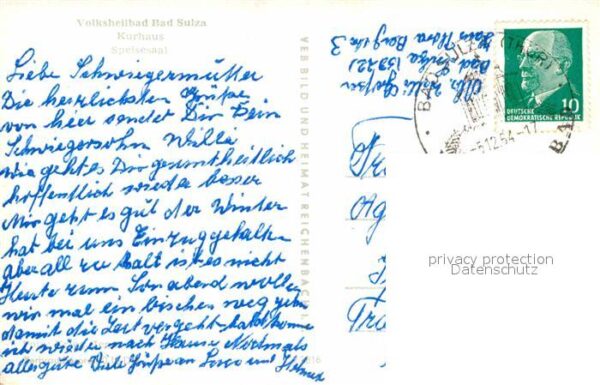 Volksheilbad Bad Sulza
Kurhaus
Speisesaal
Liebe Schwiegermütter
Die herzlichsten Grüße
von hier sendet Dir Dein
Schwiegersohn Willi
wie geht es Dir gesuntheitlich
hoffentlich wieder besser
Mir geht es gut der Winter
hat bei uns Einzug gehalten
aber all zu kalt ist es nicht
Heute zum Sonabend wollen
wir mal ein bischen weg gehn
damit die Zeit vergeht bald komme
ich wieder nach Hause Nochmals
alles gute Viele Grüße an und
VEB BILD UND HEIMAT REICHENBACH
Bad Sulza
BAD SULZA (THÜR)
DEUTSCHE
DEMOKRATISCHE REPUBLIK
10
privacy protection
Datenschutz